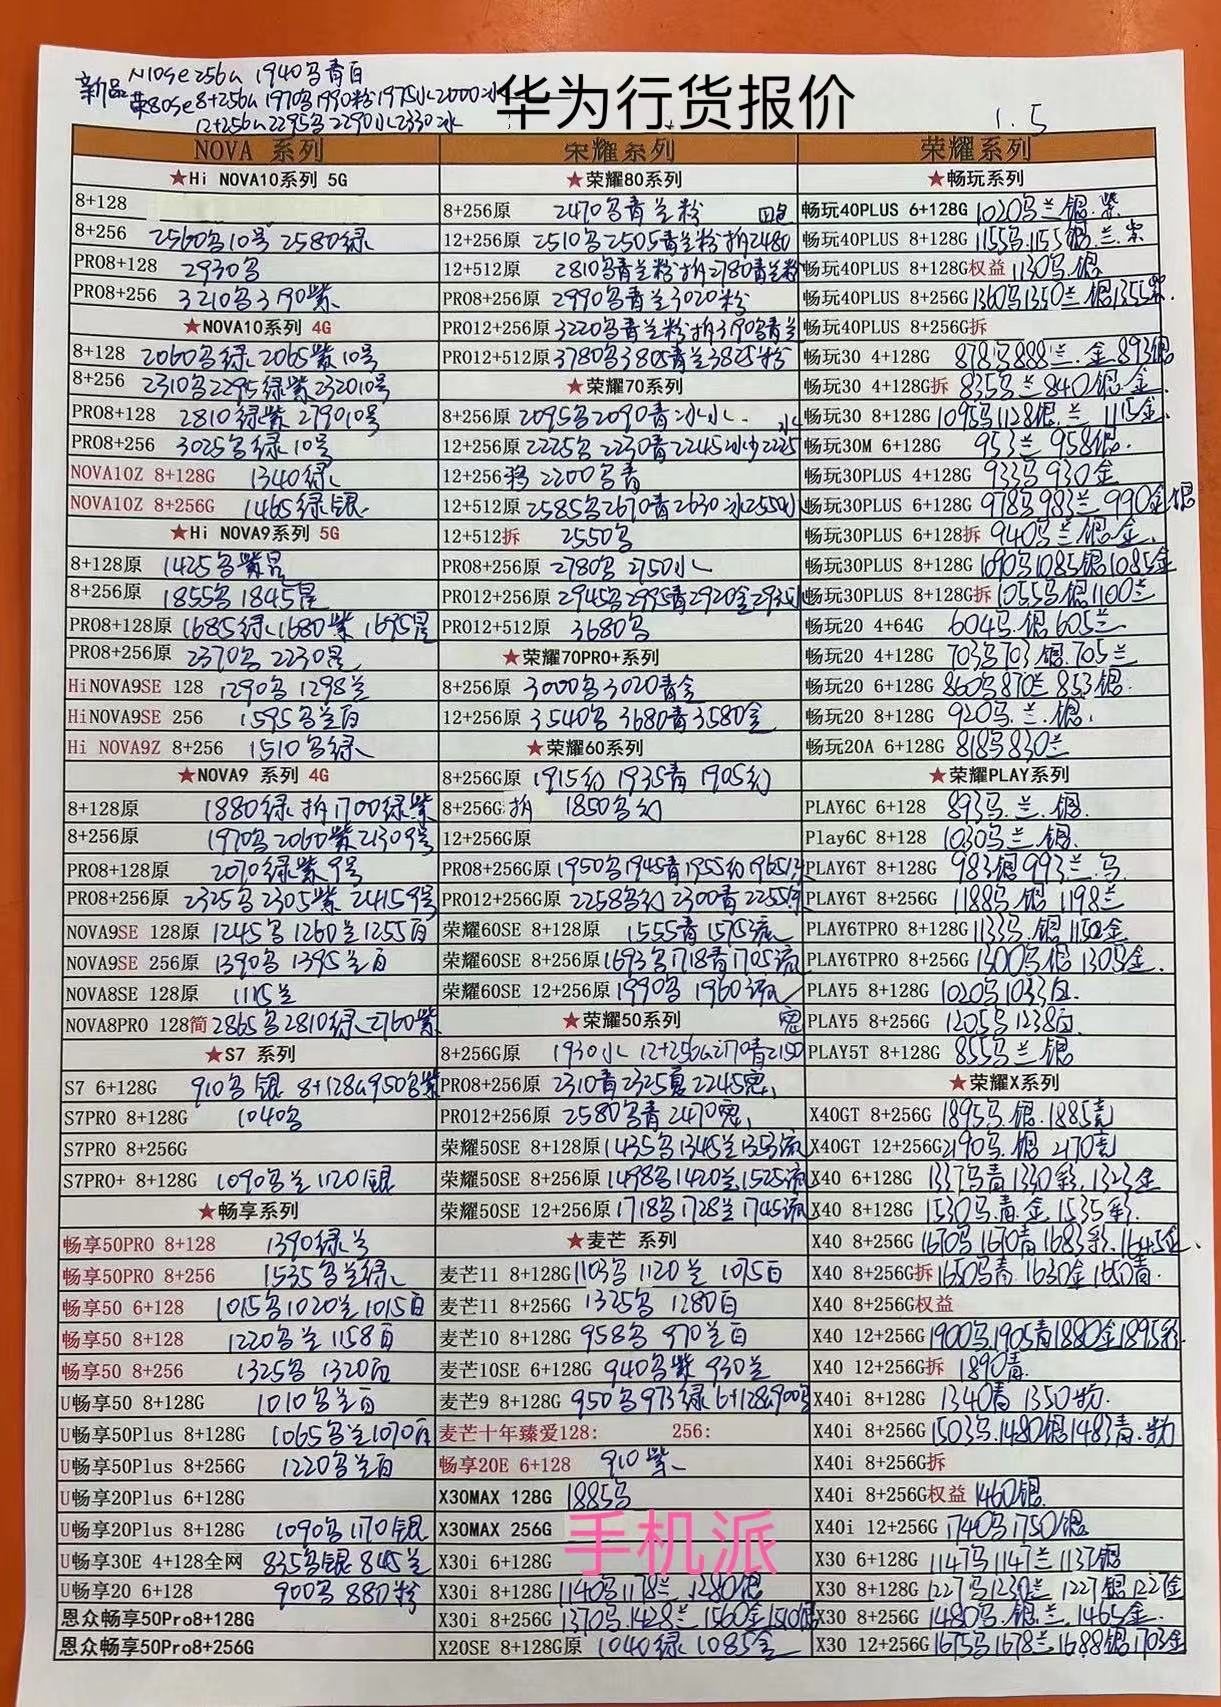 新品 N10se 256G 1940乌青白
荣80se 8+256G 1970乌1990粉1975水2000冰
12+256G 2295乌2290水2330冰
华为行货报价
1.5
NOVA 系列
★Hi NOVA10系列 5G
8+128
8+256 2560乌10号 2580绿
PRO8+128 2930乌
PRO8+256 3210乌3190紫
★NOVA10系列 4G
8+128 2060乌绿 2065紫10号
8+256 2310乌2295绿紫232010号
PRO8+128 2810绿紫 279010号
PRO8+256 3025乌绿10号
NOVA10Z 8+128G 1340绿
NOVA10Z 8+256G 1465绿银
★Hi NOVA9系列 5G
8+128原 1425乌紫星
8+256原 1855乌 1845星
PRO8+128原 1685绿 1680紫 1695星
PRO8+256原 2370乌 2230星
HiNOVA9SE 128 1290乌 1298兰
HiNOVA9SE 256 1595乌兰白
Hi NOVA9Z 8+256 1510乌绿
★NOVA9 系列 4G
8+128原 1880绿 拆1700绿紫
8+256原 1970乌2060紫21309号
PRO8+128原 2070绿紫9号
PRO8+256原 2325乌2305紫 24159号
NOVA9SE 128原 1245乌1260兰1255白
NOVA9SE 256原 1390乌 1395兰白
NOVA8SE 128原 1115兰
NOVA8PRO 128简 2865乌2810绿 2760紫
★S7 系列
S7 6+128G 910乌 银 8+128G 950乌紫
S7PRO 8+128G 1040乌
S7PRO 8+256G
S7PRO+ 8+128G 1090乌兰 1120银
★畅享系列
畅享50PRO 8+128 1390绿兰
畅享50PRO 8+256 1535乌兰绿
畅享50 6+128 1015乌1020兰1015白
畅享50 8+128 1220乌兰 1158白
畅享50 8+256 1325乌 1320白
U畅享50 8+128G 1010乌兰白
U畅享50Plus 8+128G 1065乌兰1070白
U畅享50Plus 8+256G 1220乌兰白
U畅享20Plus 6+128G
U畅享20Plus 8+128G 1090乌1170银
U畅享30E 4+128全网 835乌银 845兰
U畅享20 6+128 900乌 880粉
恩众畅享50Pro8+128G
恩众畅享50Pro8+256G
荣耀系列
★荣耀80系列
8+256原 2470乌青兰粉
12+256原 2510乌2505青兰粉拆2480
12+512原 2810乌青兰粉拆2780青兰粉
PRO8+256原 2990乌青兰3020粉
PRO12+256原 3220乌青兰粉拆3190乌青兰
PRO12+512原 3780乌3805青兰3825粉
★荣耀70系列
8+256原 2095乌2090青冰水
12+256原 2225乌2230青2245冰2225水
12+256 2200乌青
12+512原 2585乌2670青2630冰2550水
12+512拆 2550乌
PRO8+256原 2780乌 2750水
PRO12+256原 2945乌2995青2920金
PRO12+512原 3680乌
★荣耀70PRO+系列
8+256原 3000乌3020青金
12+256原 3540乌 3680青3580金
★荣耀60系列
8+256G原 1915幻 1935青 1905幻
8+256G拆 1850乌幻
12+256G原
PRO8+256G原 1950乌1945青1955幻1965
PRO12+256G原 2258乌幻 2300青2255
荣耀60SE 8+128原 1555青 1575流
荣耀60SE 8+256原 1693乌1718青1705流
荣耀60SE 12+256原 1990乌 1960流
★荣耀50系列
8+256G原 1930水 12+256G2170青2150密
PRO8+256原 2310青2325夏2245密
PRO12+256原 2580乌青 2470密
荣耀50SE 8+128原 1435乌1345兰1353流
荣耀50SE 8+256原 1498乌1420兰1525流
荣耀50SE 12+256原 1718乌1728兰1745流
★麦芒 系列
麦芒11 8+128G 1103乌 1120兰 1075白
麦芒11 8+256G 1325乌 1280白
麦芒10 8+128G 958乌 970兰白
麦芒10SE 6+128G 940乌紫 930兰
麦芒9 8+128G 950乌973绿 6+128G900乌
麦芒十年臻爱128: 256:
畅享20E 6+128 910紫
X30MAX 128G 1885乌
X30MAX 256G
X30i 6+128G
X30i 8+128G 1140乌1178兰 1280银
X30i 8+256G 1370乌1428兰1560金1510银
X20SE 8+128G原 1040绿 1085金
荣耀系列
★畅玩系列
畅玩40PLUS 6+128G 1020乌兰.银.紫
畅玩40PLUS 8+128G 1155乌.1155银.兰.紫
畅玩40PLUS 8+128G权益 1130乌.银
畅玩40PLUS 8+256G 1360乌1350兰.银1355紫.
畅玩40PLUS 8+256G拆
畅玩30 4+128G 878乌888兰.金893银
畅玩30 4+128G拆 835乌兰840银.金.
畅玩30 8+128G 1095乌1128银.兰 1115金.
畅玩30M 6+128G 953兰 958银.
畅玩30PLUS 4+128G 933乌 930金
畅玩30PLUS 6+128G 978乌 983兰 990金.银
畅玩30PLUS 6+128拆 940乌兰银金.
畅玩30PLUS 8+128G 1090乌1085银1085金
畅玩30PLUS 8+128G拆 1055乌银1100兰
畅玩20 4+64G 604乌.银605兰
畅玩20 4+128G 703乌703银.705兰
畅玩20 6+128G 860乌870兰853银.
畅玩20 8+128G 920乌.兰.银.
畅玩20A 6+128G 818乌830兰
★荣耀PLAY系列
PLAY6C 6+128 893乌.兰.银.
Play6C 8+128 1030乌兰.银.
PLAY6T 8+128G 983银993兰.乌
PLAY6T 8+256G 1188乌.银 1198兰
PLAY6TPRO 8+128G 1133乌.银1150金
PLAY6TPRO 8+256G 1300乌银1305金.
PLAY5 8+128G 1020乌1033白.
PLAY5 8+256G 1205乌1238白.
PLAY5T 8+128G 855乌兰银
★荣耀X系列
X40GT 8+256G 1895乌.银.1885竞
X40GT 12+256G 2190乌.银 2170竞
X40 6+128G 1337乌青1330彩.1323金
X40 8+128G 1530乌.青.金.1535彩.
X40 8+256G 1670乌1670青1683彩.1645金.
X40 8+256G拆 1650乌青.1630金1650青.
X40 8+256G权益
X40 12+256G 1900乌.1905青1880金1895彩
X40 12+256G拆 1890青.
X40i 8+128G 1340青 1350粉.
X40i 8+256G 1503乌.1480银1483青.粉
X40i 8+256G拆
X40i 8+256G权益 1460银.
X40i 12+256G 1740乌1750银
X30 6+128G 1147乌1147兰1137银
X30 8+128G 1227乌1230兰.1227银1227金
X30 8+256G 1480乌.银.兰.1465金.
X30 12+256G 1675乌1678兰1688银1703金
手机派